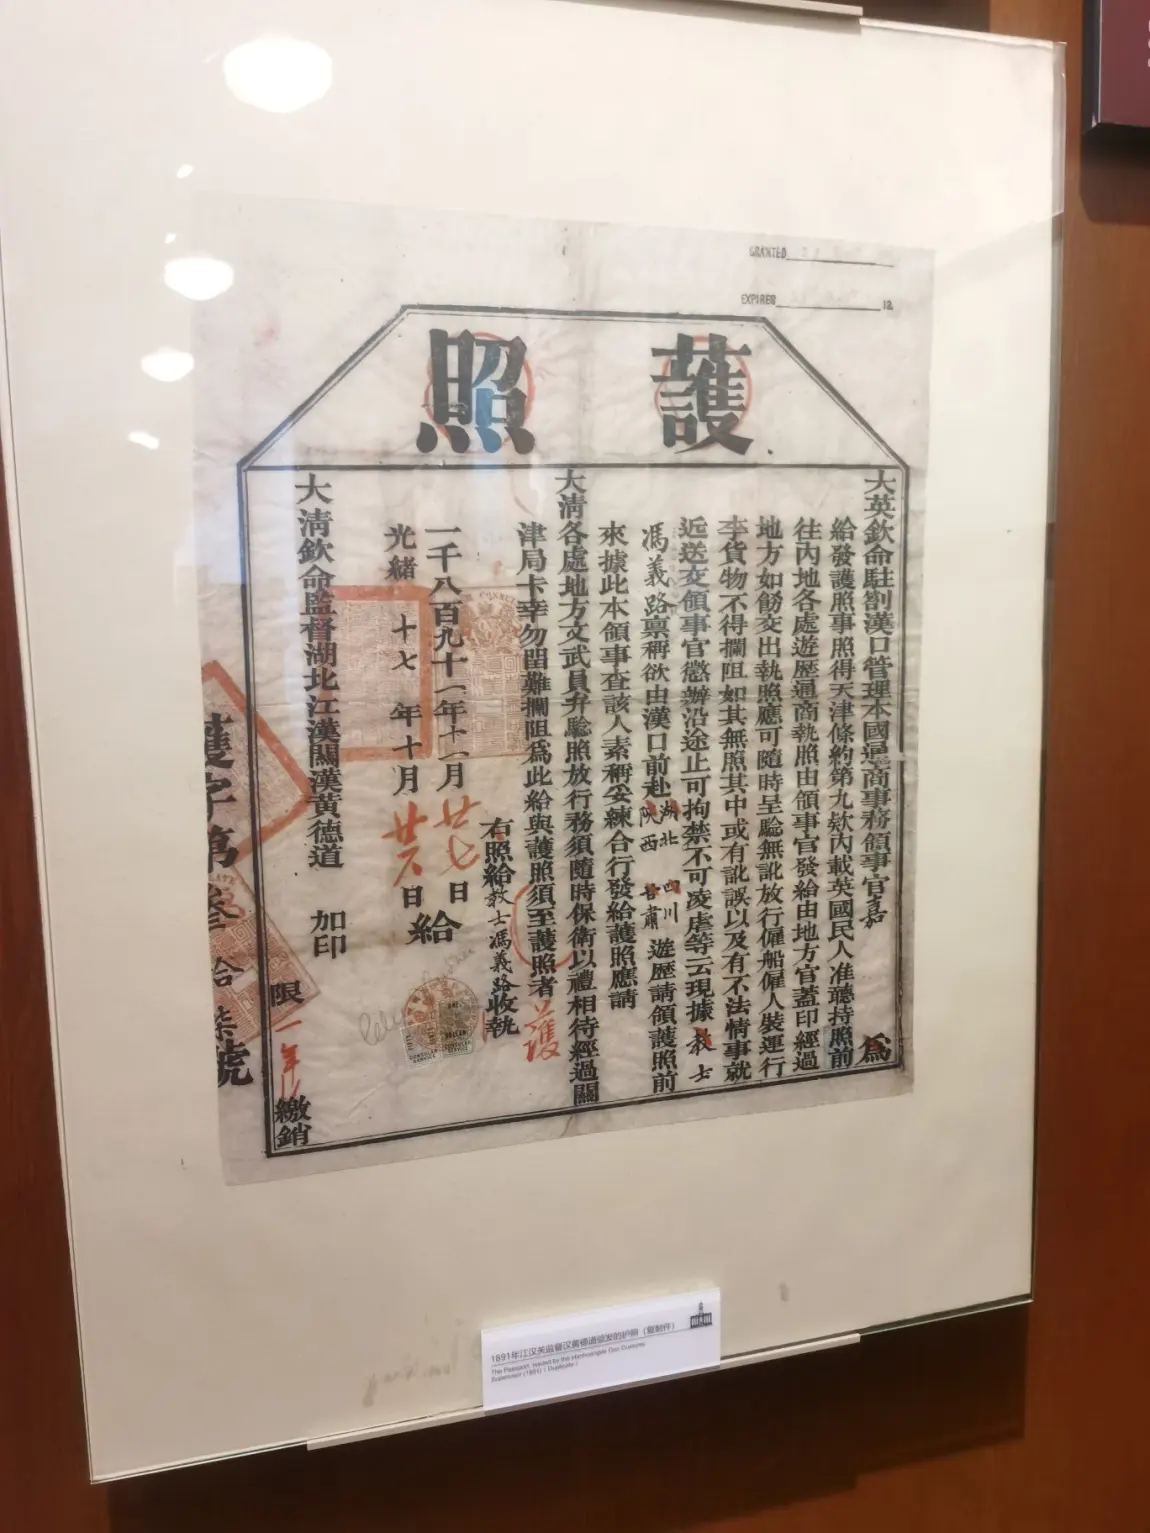 GRANTED
EXPIRES 18
護照
大英欽命駐劄漢口管理本國通商事務領事官嘉 為
給發護照事照得天津條約第九欵內載英國民人准聽持照前
往內地各處遊歷通商執照由領事官發給由地方官蓋印經過
地方如飭交出執照應可隨時呈驗無訛放行僱船僱人裝運行
李貨物不得攔阻如其無照其中或有訛誤以及有不法情事就
近送交領事官懲辦沿途止可拘禁不可凌虐等云現據教士
馮義路稟稱欲由漢口前赴湖北 四川 陝西 甘肅 遊歷請領護照前
來據此本領事查該人素稱妥練合行發給護照應請
大清各處地方文武員弁驗照放行務須隨時保衛以禮相待經過關
津局卡幸勿留難攔阻為此給與護照須至護照者
護
右照給教士馮義路收執
一千八百九十一年十一月廿七日給
光緒 十七 年十月廿六日
大清欽命監督湖北江漢關漢黃德道 加印
限一年繳銷
護字第叁拾柒號
1891年江汉关监督汉黄德道颁发的护照（复制件）
The Passport Issued by the Hanhuangde Dao Customs
Supervisor (1891) ( Duplicate )